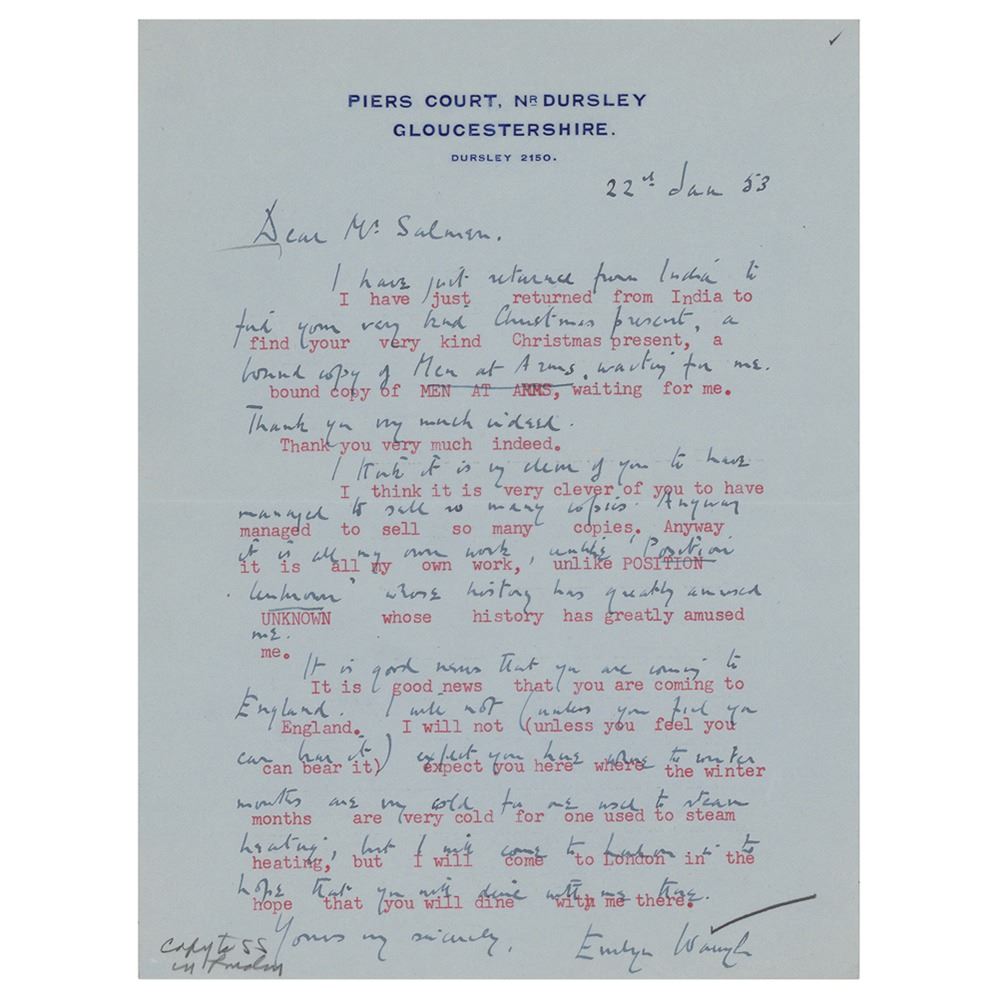 ✓
PIERS COURT, NR DURSLEY
GLOUCESTERSHIRE.
DURSLEY 2150.
22nd Jan 53
Dear Mr Salmen.
I have just returned from India to
I have just returned from India to
find your very kind Christmas present, a
find your very kind Christmas present, a
bound copy of Men at Arms, waiting for me.
bound copy of MEN AT ARMS, waiting for me.
Thank you very much indeed.
Thank you very much indeed.
I think it is very clever of you to have
I think it is very clever of you to have
managed to sell so many copies. Anyway
managed to sell so many copies. Anyway
it is all my own work, unlike 'Position
it is all my own work, unlike POSITION
Unknown' whose history has greatly amused
UNKNOWN whose history has greatly amused
me.
me.
It is good news that you are coming to
It is good news that you are coming to
England. I will not (unless you feel you
England. I will not (unless you feel you
can bear it) expect you here where the winter
can bear it) expect you here where the winter
months are very cold for one used to steam
months are very cold for one used to steam
heating, but I will come to London in the
heating, but I will come to London in the
hope that you will dine with me there.
hope that you will dine with me there.
Yours very sincerely,
Evelyn Waugh
copy to SS
in London